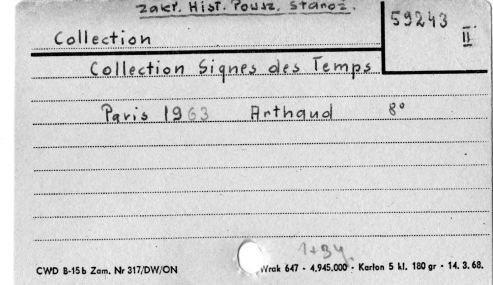 Zakł. Hist. Powsz. Staroż.
59243
II
Collection
Collection Signes des Temps
Paris 1963 Arthaud 8°
CWD B-15b Zam. Nr 317/DW/ON
Wrak 647 - 4.945.000 - Karton 5 kl. 180 gr - 14. 3. 68.